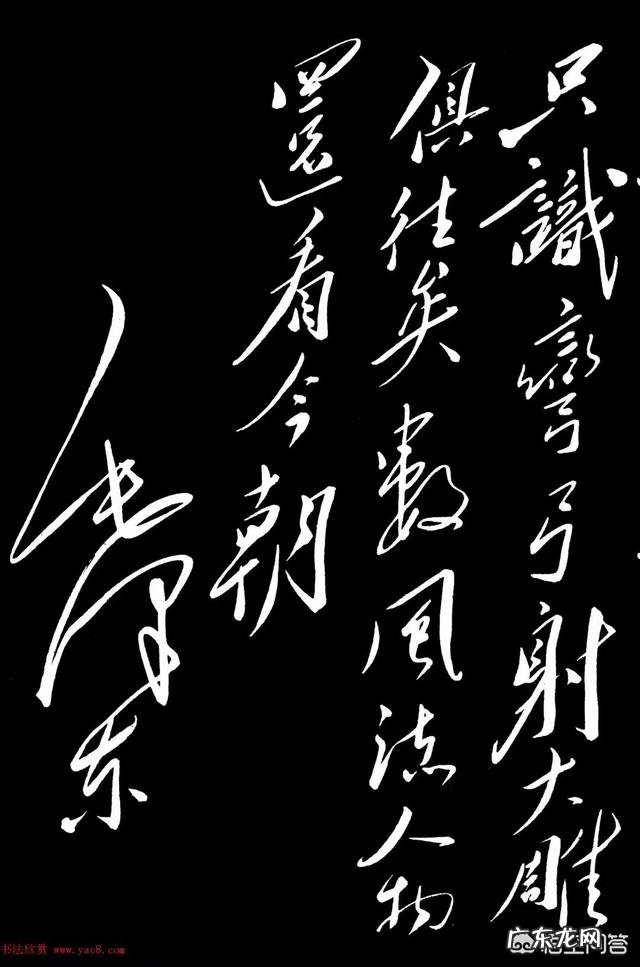 只識彎弓射大雕
俱往矣數風流人物
還看今朝
毛泽东
书法欣赏 www.yac8.com
广东龙网